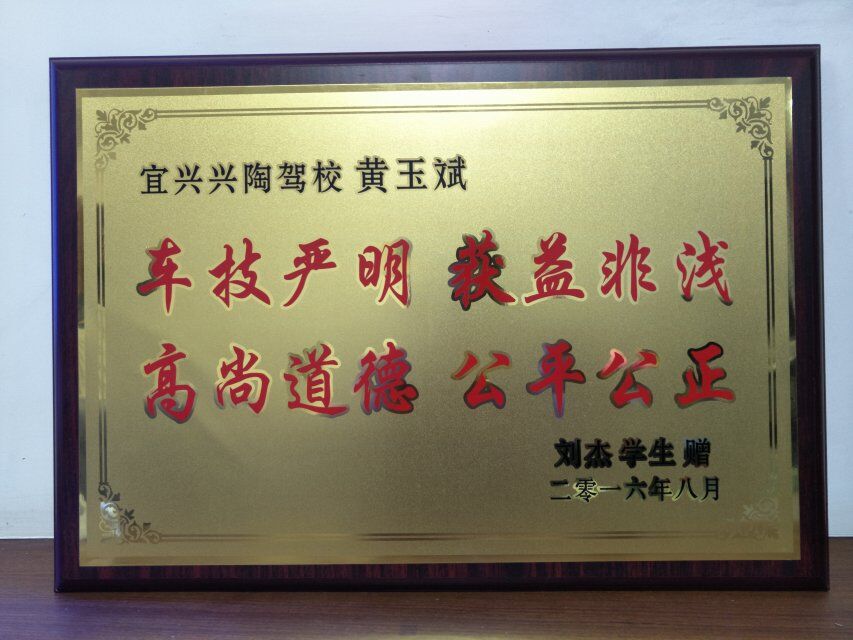 宜兴兴陶驾校 黄玉斌
车技严明 获益非浅
高尚道德 公平公正
刘杰 学生 赠
二零一六年八月